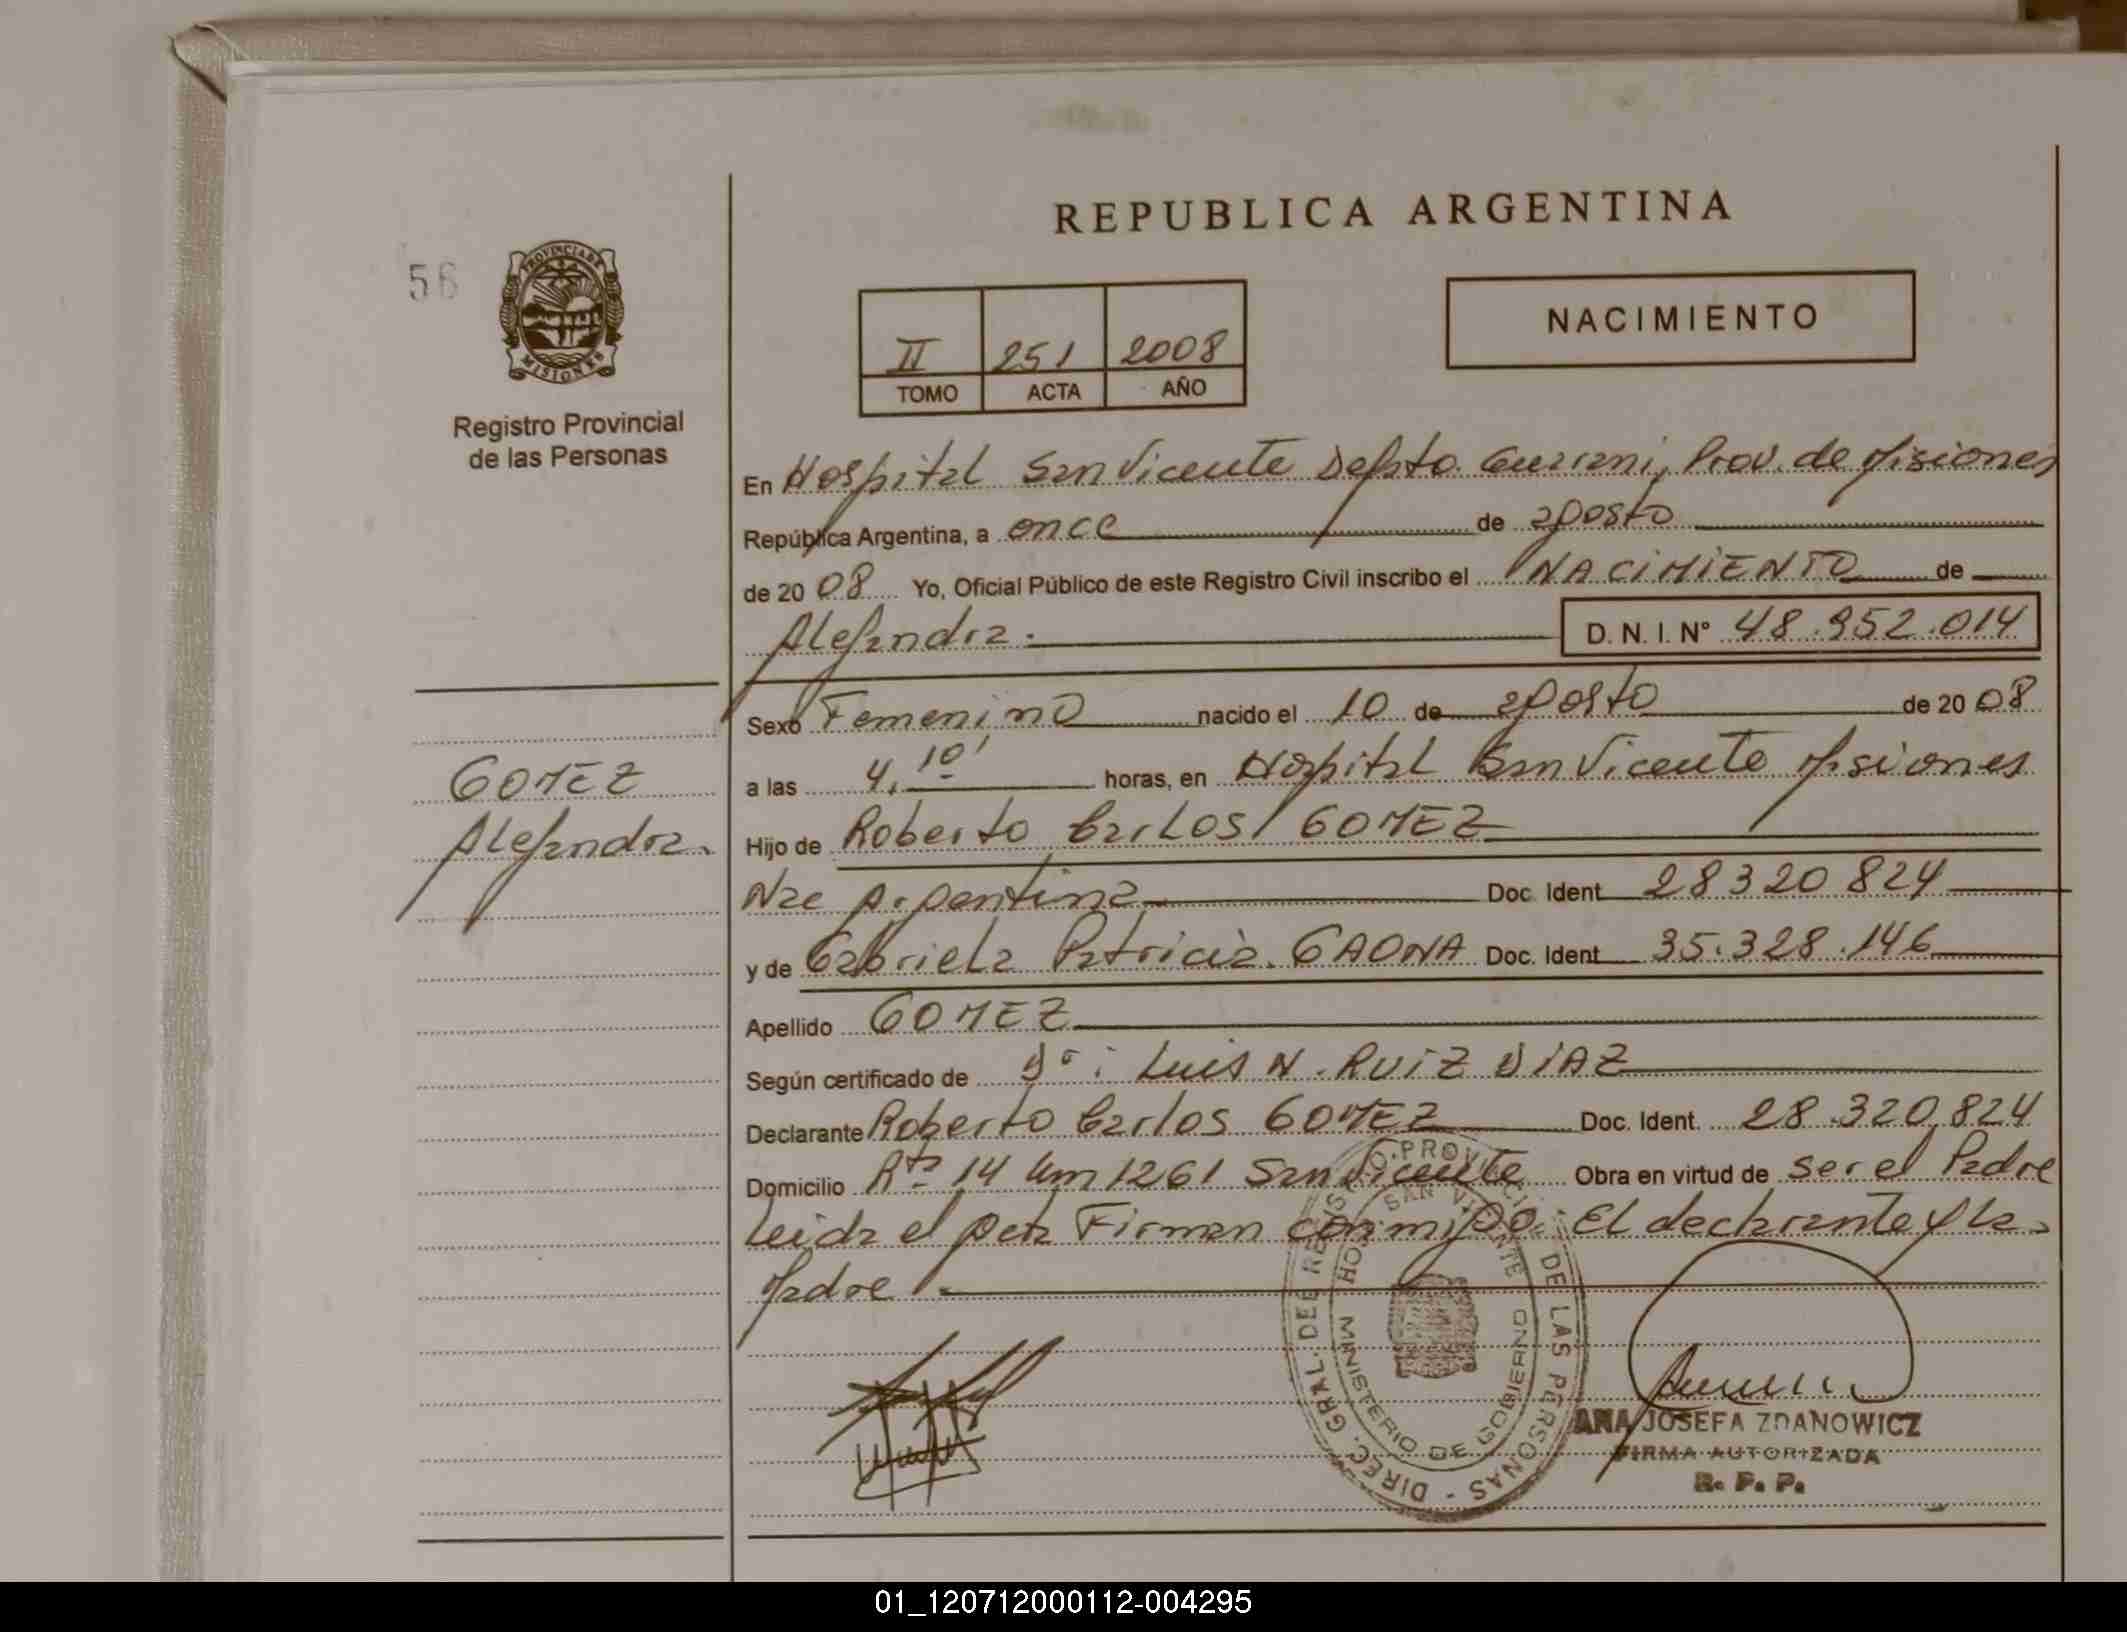 REPUBLICA ARGENTINA
56
PROVINCIA DE
MISIONES
Registro Provincial
de las Personas
II 251 2008
TOMO ACTA AÑO
NACIMIENTO
En Hospital San Vicente Depto. Guarani, Prov. de Misiones
República Argentina, a once de agosto
de 2008 Yo, Oficial Público de este Registro Civil inscribo el NACIMIENTO de
Alejandra. D. N. I. Nº 48.952.014
Sexo Femenino nacido el 10 de agosto de 2008
a las 4,10' horas, en Hospital San Vicente Misiones
GOMEZ
Alejandra.
Hijo de Roberto Carlos GOMEZ
Nac Argentina Doc. Ident 28320824
y de Gabriela Patricia GAONA Doc. Ident 35.328.146
Apellido GOMEZ
Según certificado de Dr: Luis N. RUIZ DIAZ
Declarante Roberto Carlos GOMEZ Doc. Ident. 28.320.824
Domicilio Rta 14 Km 1261 San Vicente Obra en virtud de ser el Padre
Leida el acta Firman conmigo: El declarante y la
Madre
DIREC. GRAL. DEL REGISTRO PROVINCIAL DE LAS PERSONAS
SAN VICENTE
MINISTERIO DE GOBIERNO
ANA JOSEFA ZDANOWICZ
FIRMA AUTORIZADA
R. P. P.
01_120712000112-004295